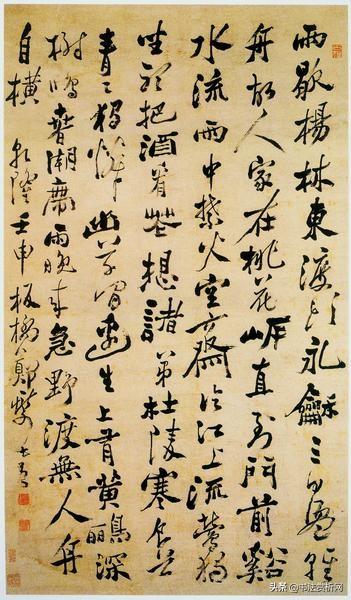 雨歇楊林東渡頭永龢三日盪輕
舟故人家在桃花岸直到門前谿
水流雨中禁火空齋冷江上流鶯獨
坐聽把酒看花想諸弟杜陵寒食草
青〻獨憐幽草澗邊生上有黃鸝深
樹鳴春潮帶雨晚來急野渡無人舟
自橫 乾隆壬申板橋鄭燮
头条 @书法赏析网